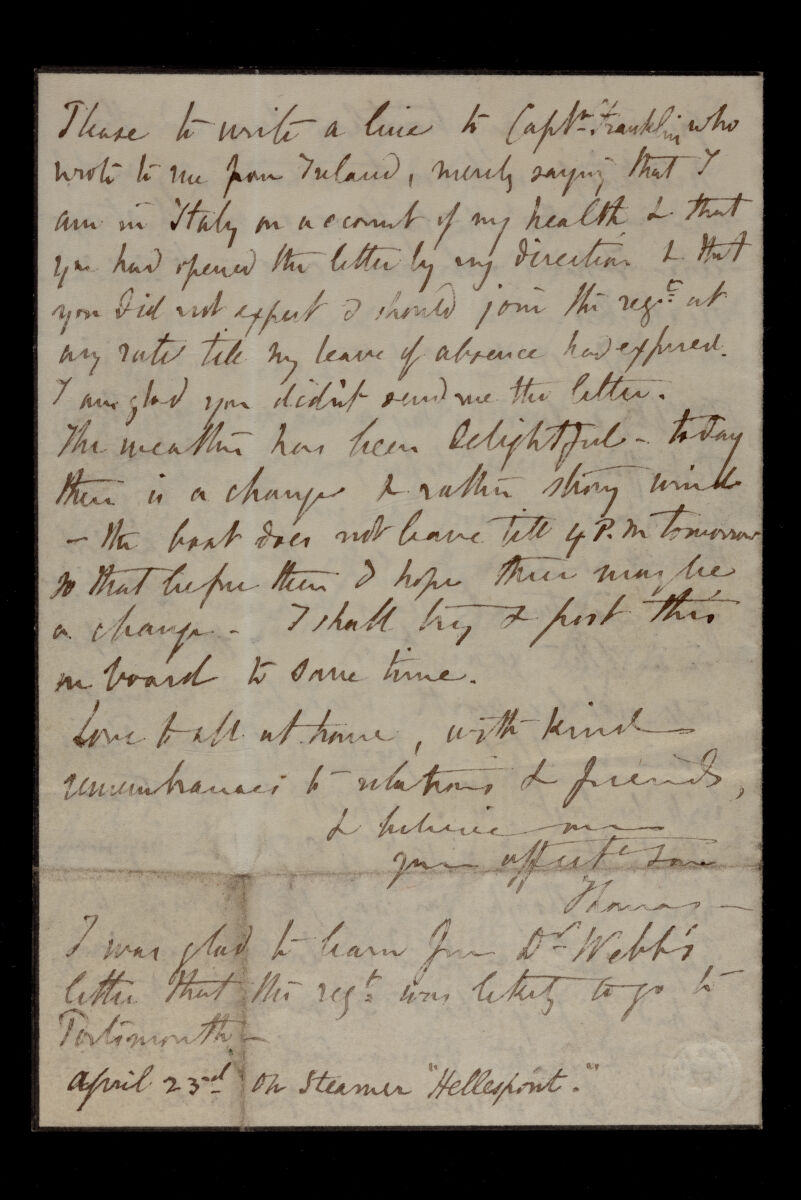 Please to write a line to Capt.n Franklin who
wrote to me from Ireland, merely saying that I
am in Italy on account of my health, & that
you had opened the letter by my direction & that
you did not expect I should join the reg.t at
any rate till my leave of absence had expired.
I am glad you didn't send me the letter.
The weather has been delightful - today
there is a change & rather strong wind
- the boat does not leave till 4 P.M tomorrow
so that before then I hope there may be
a change - I shall try & post this
on board to save time.
Love to all at home, with kind
remembrances to relations & friends,
& believe me
your affect.e Son
Thomas -
I was glad to learn from D.r Webb's
letter that the reg.t was likely to go to
Portsmouth -
April 23rd on Steamer "Hellespont."